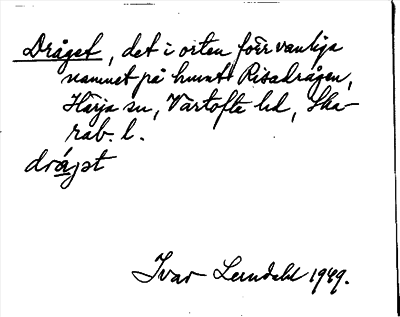 Dråget, det i orten förr vanliga
namnet på hemm. Risadrågen,
Härja sn, Vartofte hd, Ska-
rab. l.
drågət
Ivar Lundahl 1949.